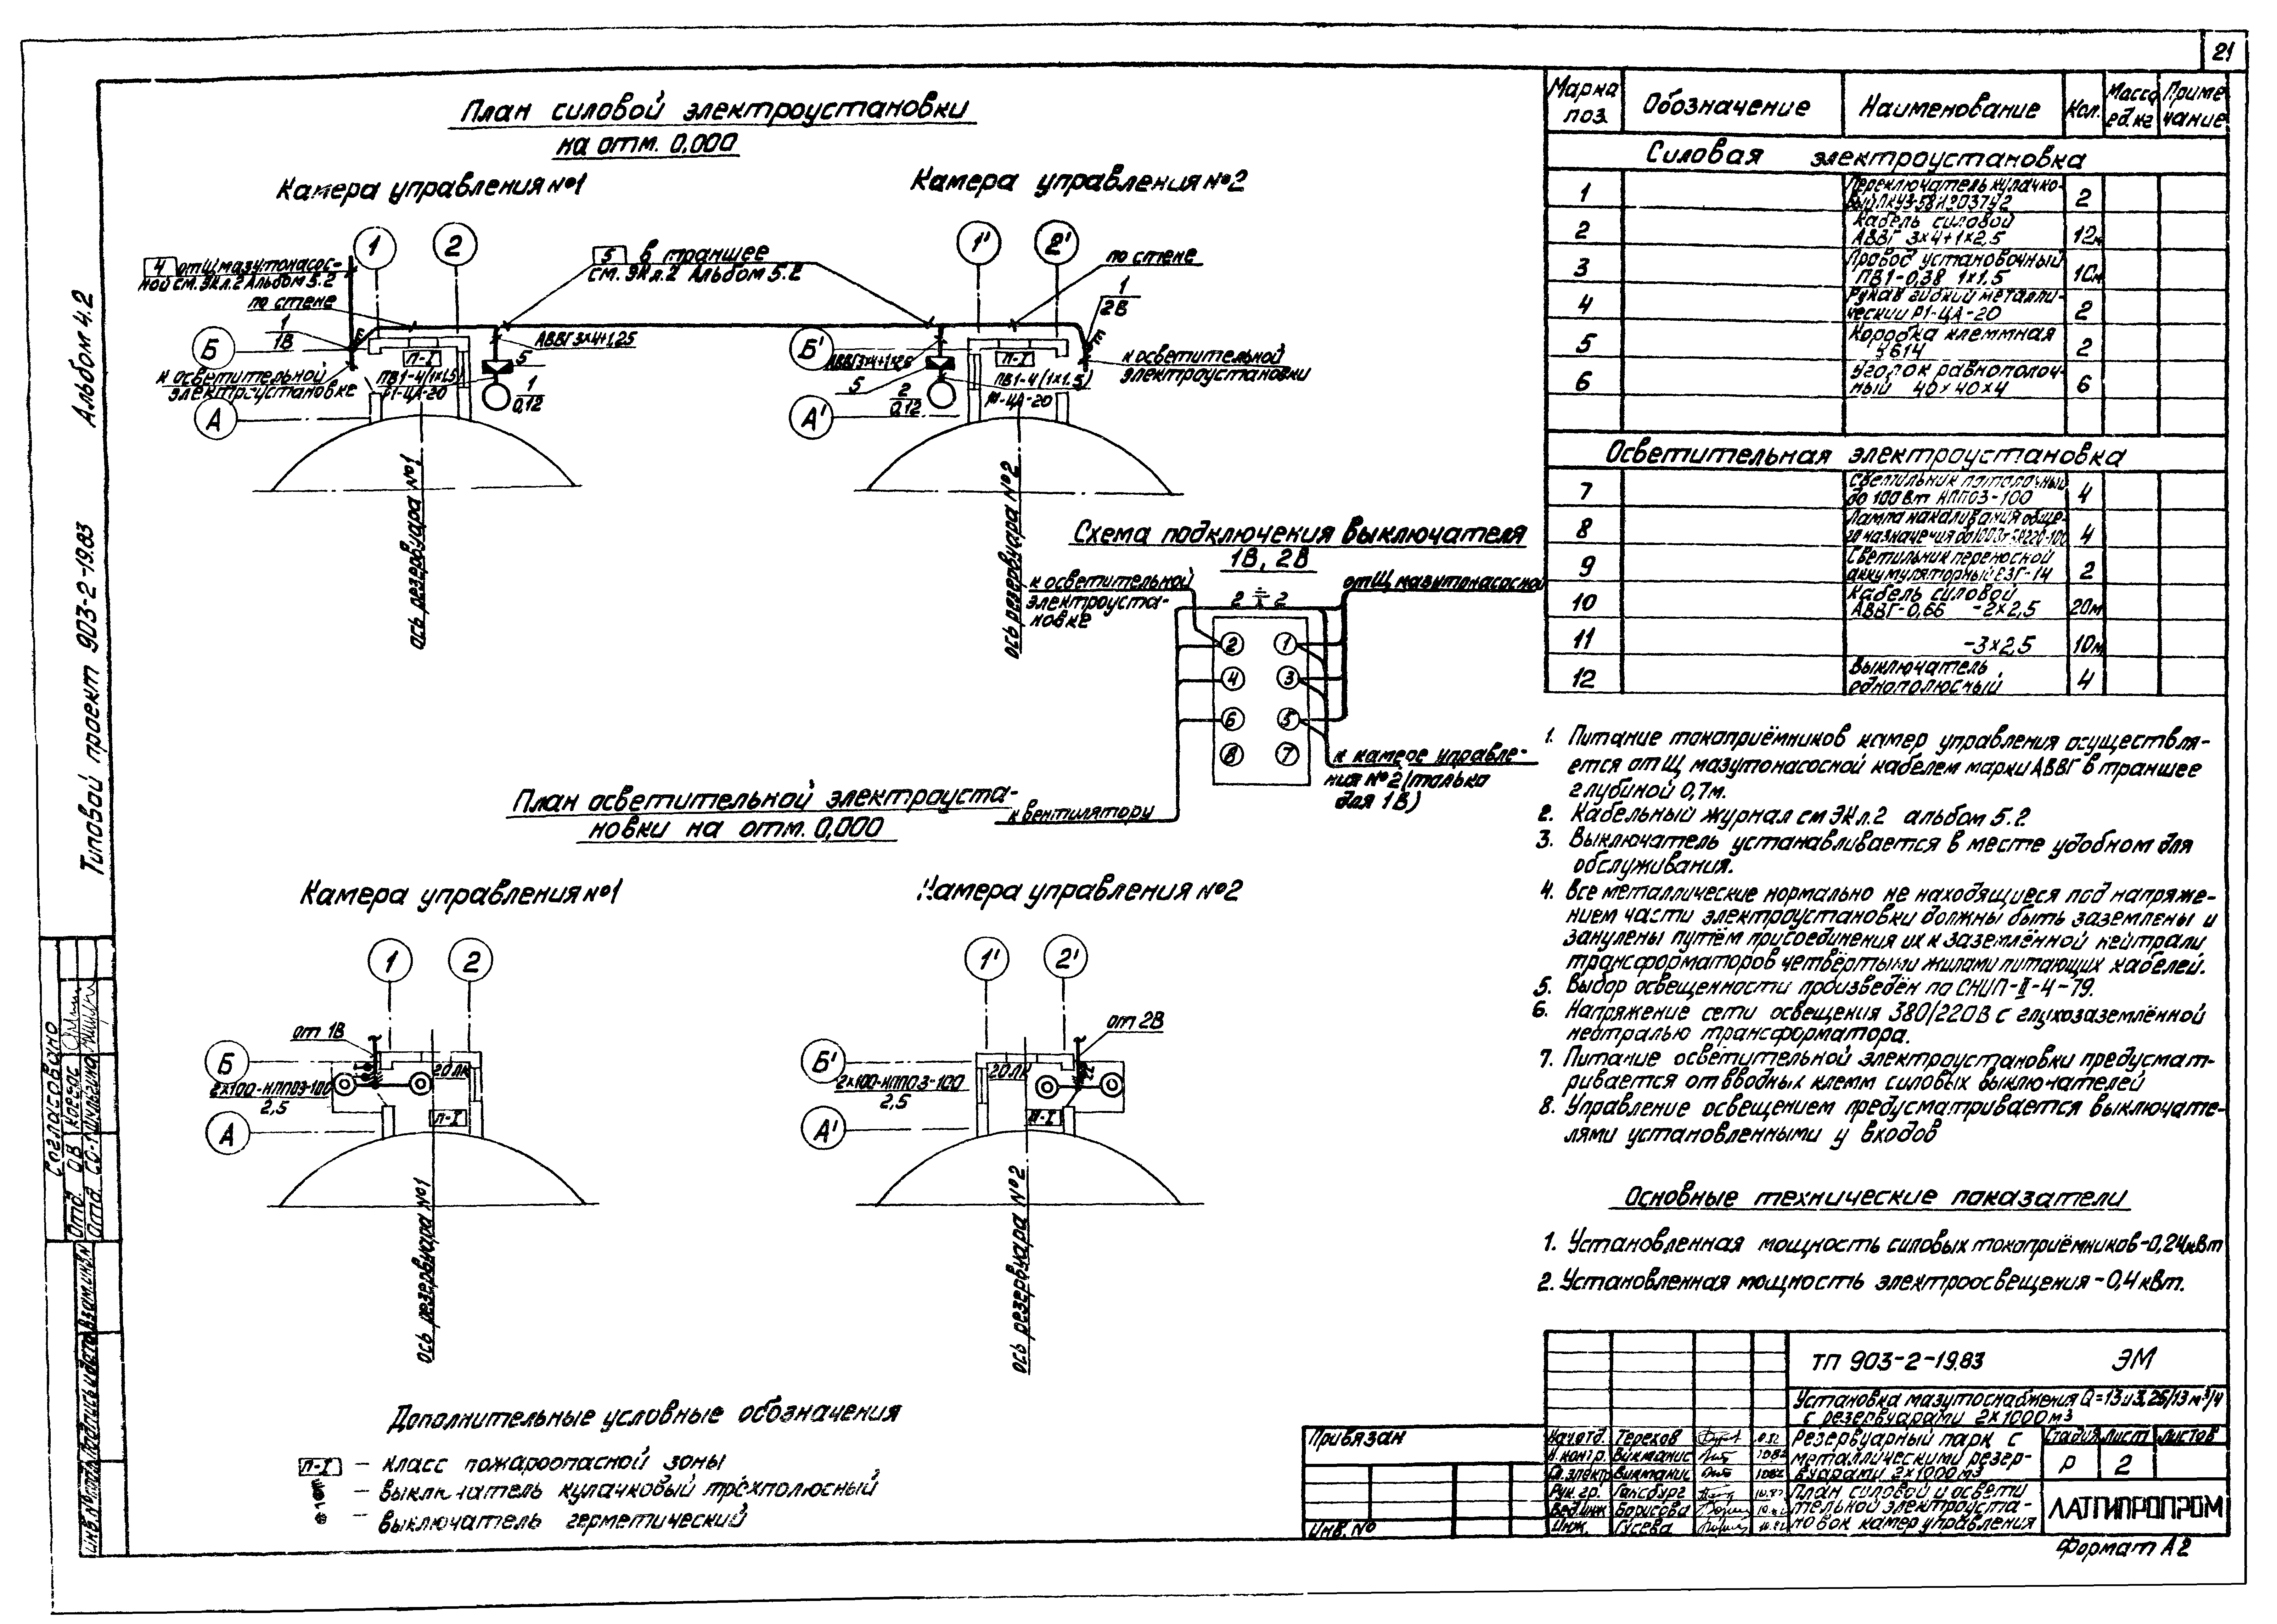 21
Альбом 4.2
Типовой проект 903-2-19.83
План силовой электроустановки
на отм. 0,000
Камера управления №1
Камера управления №2
1
2
1'
2'
4 от Щ мазутонасос-
ной см. ЭКл.2 Альбом 5.2
по стене
5 в траншее
см. ЭКл.2 Альбом 5.2
по стене
1
1В
1
2В
Б
П-I
АВВГ 3×4+1,25
5
Б'
П-I
АВВГ 3×4+1×2,5
5
к осветительной
электроустановке
ПВ1-4(1×1.5)
Р1-ЦА-20
1
0,12
2
0,12
ПВ1-4(1×1.5)
Р1-ЦА-20
к осветительной
электроустановки
А
А'
ось резервуара №1
ось резервуара №2
Схема подключения выключателя
1В, 2В
к осветительной
электроуста-
новке
от Щ мазутонасосной
2 2
2 1
4 3
6 5
8 7
к камере управле-
ния №2 (только
для 1В)
к вентилятору
План осветительной электроуста-
новки на отм. 0,000
Камера управления №1
Камера управления №2
1
2
1'
2'
от 1В
от 2В
Б
20 лк
2×100-НПП03-100
2,5
П-I
А
Б'
20 лк
2×100-НПП03-100
2,5
П-I
А'
ось резервуара №1
ось резервуара №2
Дополнительные условные обозначения
П-I – класс пожароопасной зоны
– выключатель кулачковый трёхполюсный
– выключатель герметический
Марка поз. Обозначение Наименование Кол. Масса ед.кг Приме-чание
Силовая электроустановка
1 Переключатель кулачко-
2
2 Кабель силовой
АВВГ 3×4+1×2,5 12м
3 Провод установочный
ПВ1-0,38 1×1.5 10м
4 Рукав гибкий металли-
ческий Р1-ЦА-20 2
5 Коробка клеммная
У614 2
6 Уголок равнополоч-
ный 40×40×4 6
Осветительная электроустановка
7 Светильник потолочный
до 100 Вт НПП03-100 4
8 Лампа накаливания обще-
го назначения до 4
9 Светильник переносной
аккумуляторный 2
10 Кабель силовой
АВВГ-0,66 -2×2,5 20м
11 -3×2,5 10м
12 Выключатель
однополюсный 4
1. Питание токоприёмников камер управления осуществля-
ется от Щ мазутонасосной кабелем марки АВВГ в траншее
глубиной 0,7м.
2. Кабельный журнал см ЭКл.2 альбом 5.2
3. Выключатель устанавливается в месте удобном для
обслуживания.
4. Все металлические нормально не находящиеся под напряже-
нием части электроустановки должны быть заземлены и
занулены путём присоединения их к заземлённой нейтрали
трансформаторов четвёртыми жилами питающих кабелей.
5. Выбор освещенности произведён по СНиП-II-4-79.
6. Напряжение сети освещения 380/220В с глухозаземлённой
нейтралью трансформатора.
7. Питание осветительной электроустановки предусмат-
ривается от вводных клемм силовых выключателей
8. Управление освещением предусматривается выключате-
лями установленными у входов
Основные технические показатели
1. Установленная мощность силовых токоприёмников-0,24кВт
2. Установленная мощность электроосвещения-0,4кВт.
ТП 903-2-19.83 ЭМ
Установка мазутоснабжения Q=13и3,25/13м³/ч
с резервуарами 2×1000м3
Нач.отд. Терехов
Н.контр. Викманис 1082
Гл.электр Викманис 1082
Рук. гр. Гансбург
Вед.инж Борисова
Инж. Гусева
Резервуарный парк с
металлическими резер-
вуарами 2×1000м3
Стадия лист листов
Р 2
План силовой и освети
тельной электроуста-
новок камер управления
ЛАТГИПРОПРОМ
Формат А2
Привязан
Инв.№
Согласовано
Отд. ОВ
Отд. СО-1 Шульгина
Взам.инв.N
Подпись и дата
Инв.№ подл.